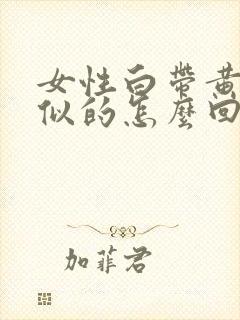 女性白带黄
似的怎麼回
加菲君